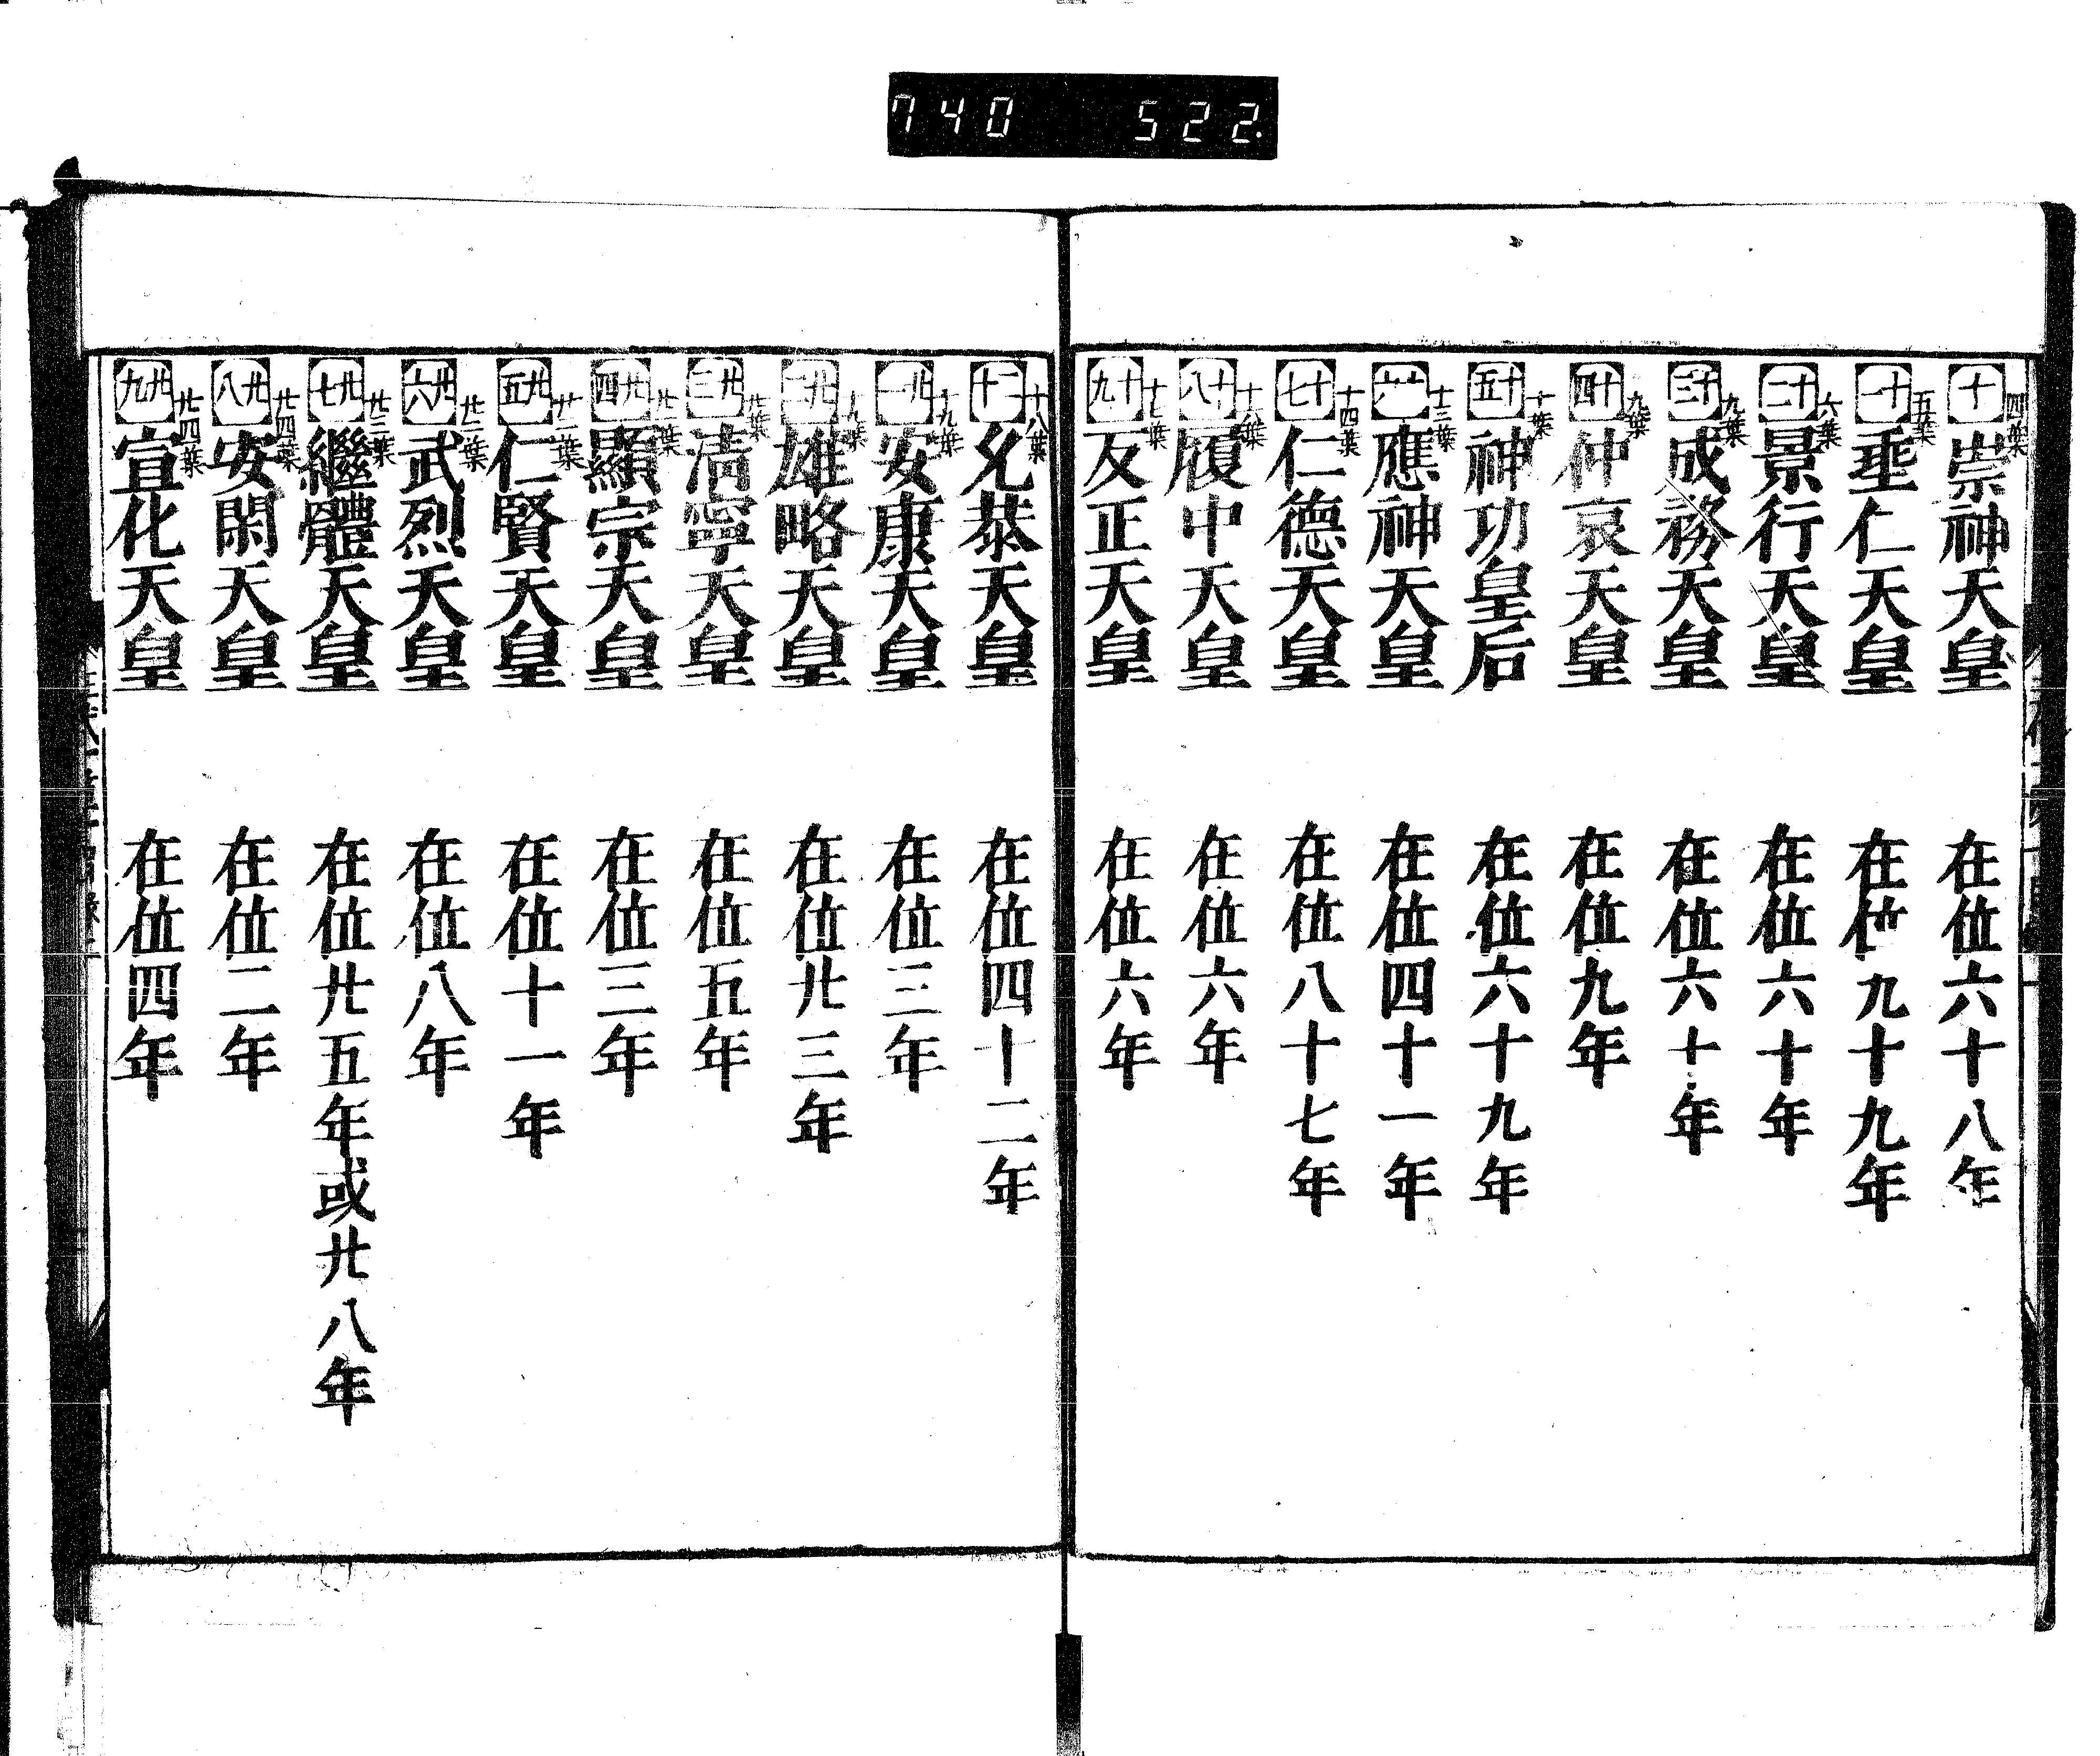 740 522
十 四葉 崇神天皇 在位六十八年
十一 五葉 垂仁天皇 在位九十九年
十二 六葉 景行天皇 在位六十年
十三 九葉 成務天皇 在位六十年
十四 九葉 仲哀天皇 在位九年
十五 十葉 神功皇后 在位六十九年
十六 十三葉 應神天皇 在位四十一年
十七 十四葉 仁德天皇 在位八十七年
十八 履中天皇 在位六年
十九 十七葉 反正天皇 在位六年
二十 十八葉 允恭天皇 在位四十二年
廿一 十九葉 安康天皇 在位三年
廿二 十九葉 雄略天皇 在位廿三年
廿三 淸寧天皇 在位五年
廿四 顯宗天皇 在位三年
廿五 仁賢天皇 在位十一年
廿六 武烈天皇 在位八年
廿七 廿三葉 繼體天皇 在位廿五年或廿八年
廿八 廿四葉 安閑天皇 在位二年
廿九 廿四葉 宣化天皇 在位四年